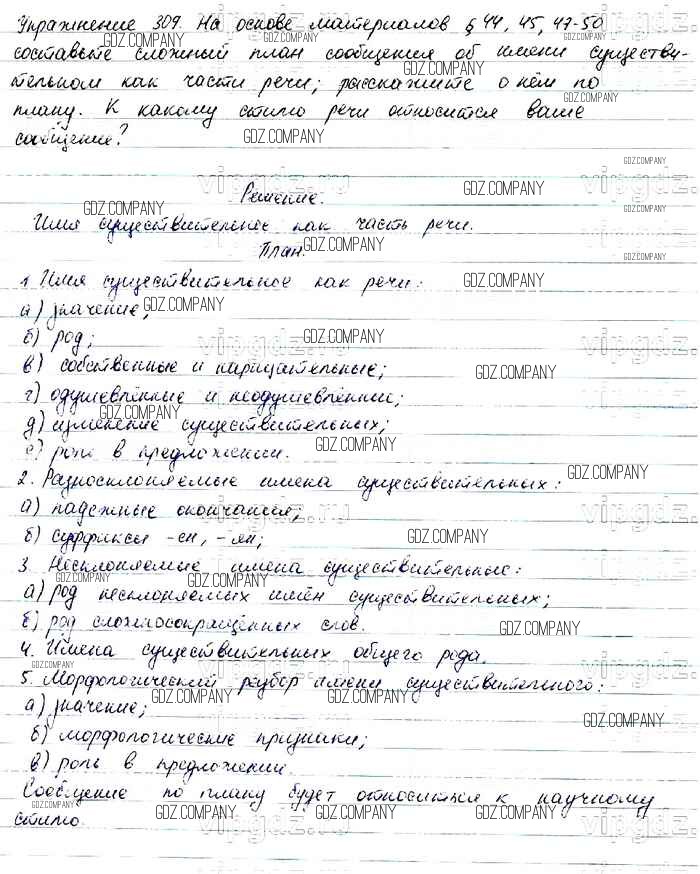 Упражнение 309. На основе материалов § 44, 45, 47-50
составьте сложный план сообщения об имени существи-
тельном как части речи; расскажите о нём по
плану. К какому стилю речи относится ваше
сообщение?
Решение.
Имя существительное как часть речи.
План.
1. Имя существительное как речи:
а) значение;
б) род;
в) собственные и нарицательные;
г) одушевлённые и неодушевлённые;
д) изменение существительных;
е) роль в предложении.
2. Разносклоняемые имена существительных:
а) падежные окончания;
б) суффиксы -ен, -ян;
3. Несклоняемые имена существительные:
а) род несклоняемых имён существительных;
б) род сложносокращённых слов.
4. Имена существительных общего рода.
5. Морфологический разбор имени существительного:
а) значение;
б) морфологические признаки;
в) роль в предложении.
Сообщение по плану будет относиться к научному
стилю.
GDZ.COMPANY
vipgdz.ru